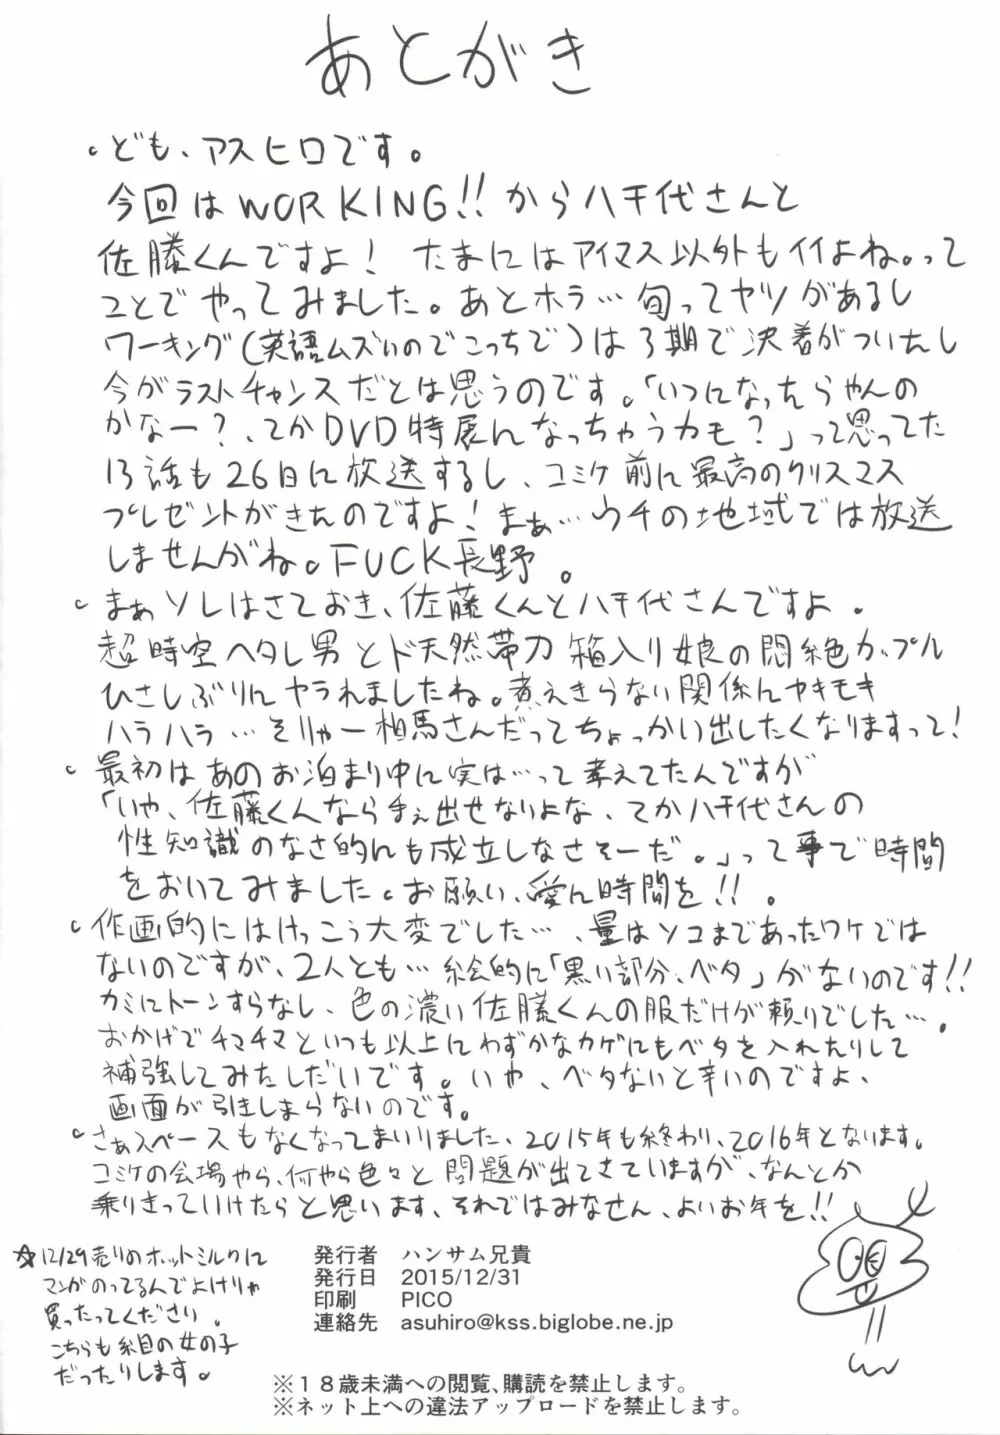 あとがき
ども、アスヒロです。
今回はWORKING!!から八千代さんと
佐藤くんですよ! たまにはアイマス以外もイイよね。って
ことでやってみました。あとホラ…旬ってヤツがあるし
ワーキング(英語ムズいのでこっちで)は3期で決着がついたし
今がラストチャンスだとは思うのです。「いつになったらやんの
かなー?、てかDVD特展になっちゃうカモ?」って思ってた
13話も26日に放送するし、コミケ前に最高のクリスマス
プレゼントがきたのですよ!まぁ…ウチの地域では放送
しませんがね。FUCK長野。
まぁソレはさておき、佐藤くんと八千代さんですよ。
超時空ヘタレ男とド天然帯刀箱入り娘の悶絶カップル
ひさしぶりにヤラれましたね。煮えきらない関係にヤキモキ
ハラハラ…そりゃー相馬さんだってちょっかい出したくなりますって!
最初はあのお泊まり中に実は…って考えてたんですが
「いや、佐藤くんなら手ぇ出せないよな、てか八千代さんの
性知識のなさ的にも成立しなさそーだ。」って事で時間
をおいてみました。お願い、愛に時間を!!。
作画的にはけっこう大変でした…、量はソコまであったワケでは
ないのですが、2人とも…絵的に「黒い部分、ベタ」がないのです!!
カミにトーンすらなし、色の濃い佐藤くんの服だけが頼りでした…。
おかげでチマチマといつも以上にわずかなカゲにもベタを入れたりして
補強してみたしだいです。いや、ベタないと辛いのですよ、
画面が引きしまらないのです。
さぁスペースもなくなってまいりました、2015年も終わり、2016年となります。
コミケの会場やら、何やら色々と問題が出てきていますが、なんとか
乗りきっていけたらと思います、それではみなせん、よいお年を!!
☆12/29売りのホットミルクに
マンガのってるんでよけりゃ
買ったってください。
こちらも糸目の女の子
だったりします。
発行者 ハンサム兄貴
発行日 2015/12/31
印刷 PICO
連絡先 asuhiro@kss.biglobe.ne.jp
※18歳未満への閲覧、購読を禁止します。
※ネット上への違法アップロードを禁止します。